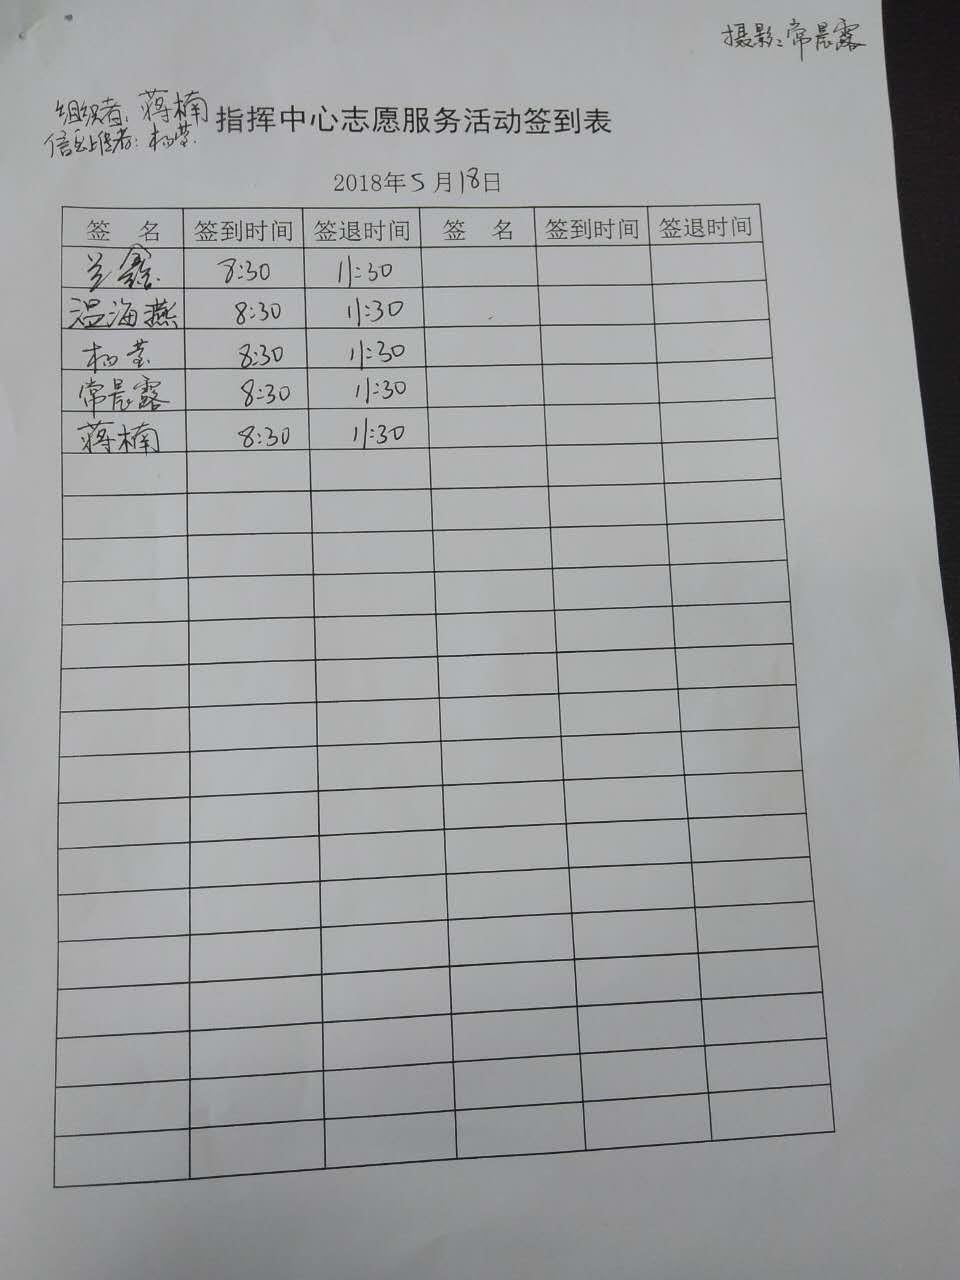 摄影：常晨露
组织者：蒋楠
指挥中心志愿服务活动签到表
信息上传者：杨莹
2018年5月18日
签 名 签到时间 签退时间 签 名 签到时间 签退时间
兰鑫 8:30 11:30
温海燕 8:30 11:30
杨莹 8:30 11:30
常晨露 8:30 11:30
蒋楠 8:30 11:30